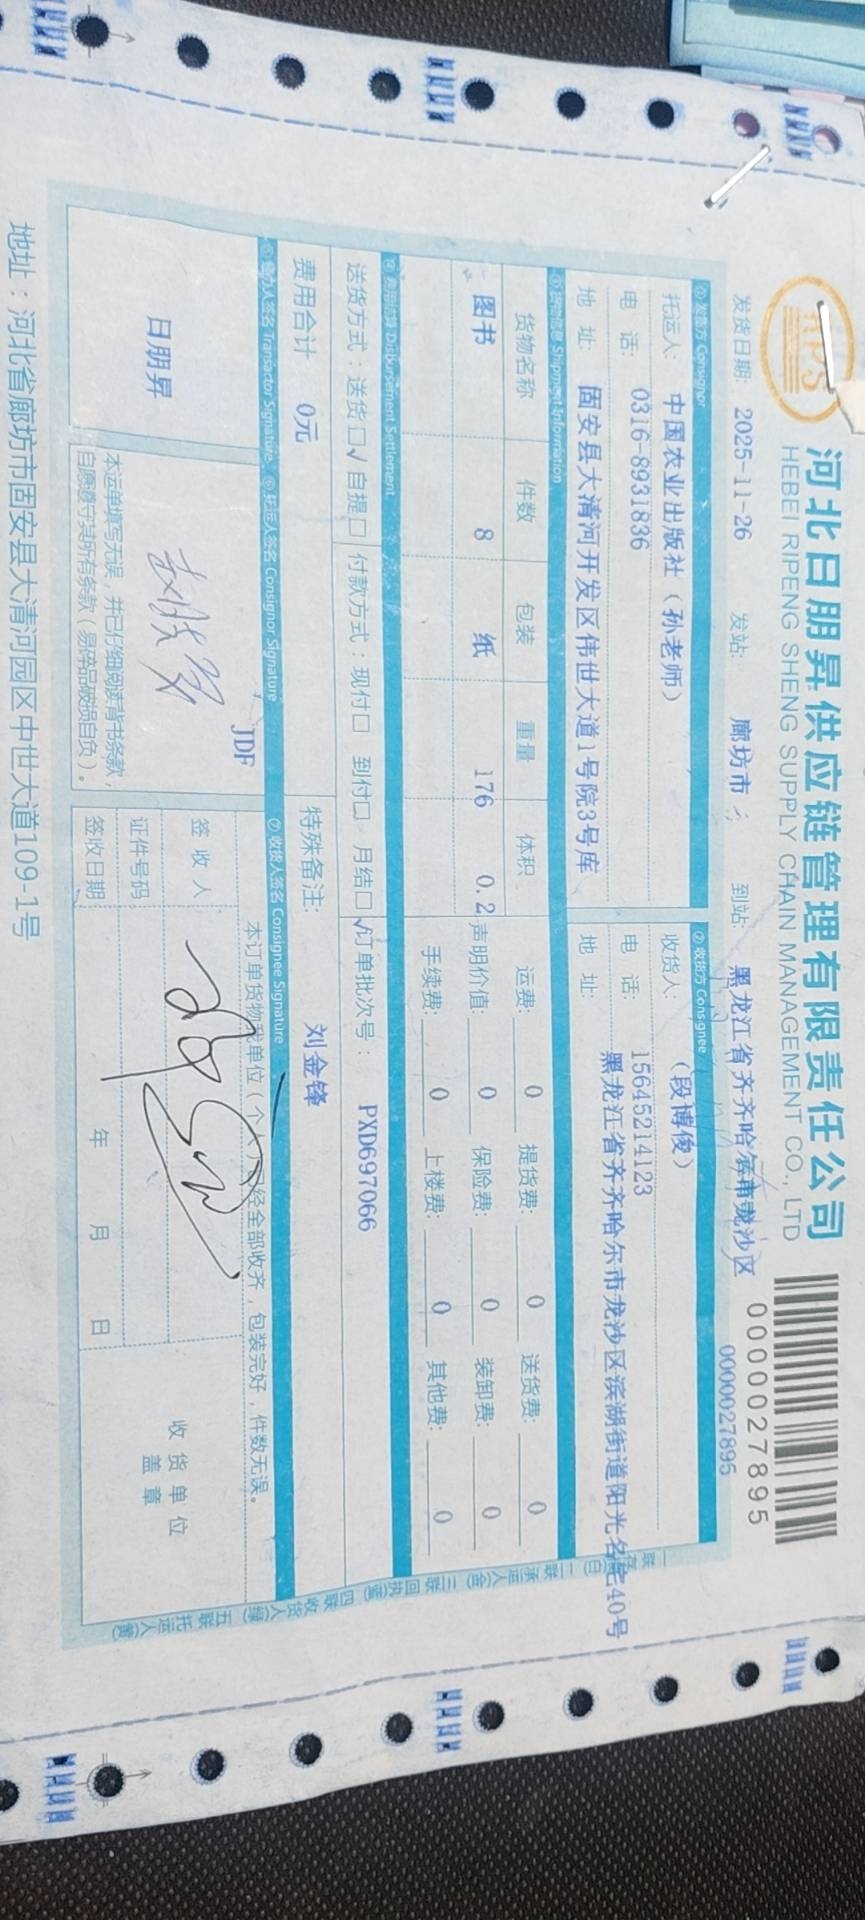 河北日朋昇供应链管理有限责任公司
HEBEI RIPENG SHENG SUPPLY CHAIN MANAGEMENT CO., LTD
0000027895
0000027895
发货日期: 2025-11-26 发站: 廊坊市 到站: 黑龙江省齐齐哈尔市龙沙区
①发货方 Consignor
托运人: 中国农业出版社（孙老师）
电 话: 0316-8931836
地 址: 固安县大清河开发区伟世大道1号院3号库
②收货方 Consgnee
收货人: （段博俊）
电 话: 15645214123
地 址: 黑龙江省齐齐哈尔市龙沙区滨湖街道阳光名宅40号
③货物信息 Shipment Information
货物名称 件数 包装 重量 体积
图书 8 纸 176 0.2
运费: 0 提货费: 0 送货费: 0
声明价值: 0 保险费: 0 装卸费: 0
手续费: 0 上楼费: 0 其他费: 0
④费用结算 Disbursement Settlement
送货方式：送货□√ 自提□ 付款方式：现付□ 到付□ 月结□√ 订单批次号： PXD697066
费用合计 0元
特殊备注: 刘金锋
⑤经办人签名 Transactor Signature
⑥托运人签名 Consignor Signature
⑦收货人签名 Consignee Signature
日朋昇
JDF
本运单填写无误，并已仔细阅读背书条款，
自愿遵守其所有条款（易碎品破损自负）。
本订单货物我单位（个人）已经全部收齐，包装完好，件数无误。
签 收 人
证件号码
签收日期 年 月 日
收货单位
盖 章
一联存根(白) 二联承运人(金) 三联回执(蓝) 四联收货人(绿) 五联托运人(黄)
地址：河北省廊坊市固安县大清河园区中世大道109-1号